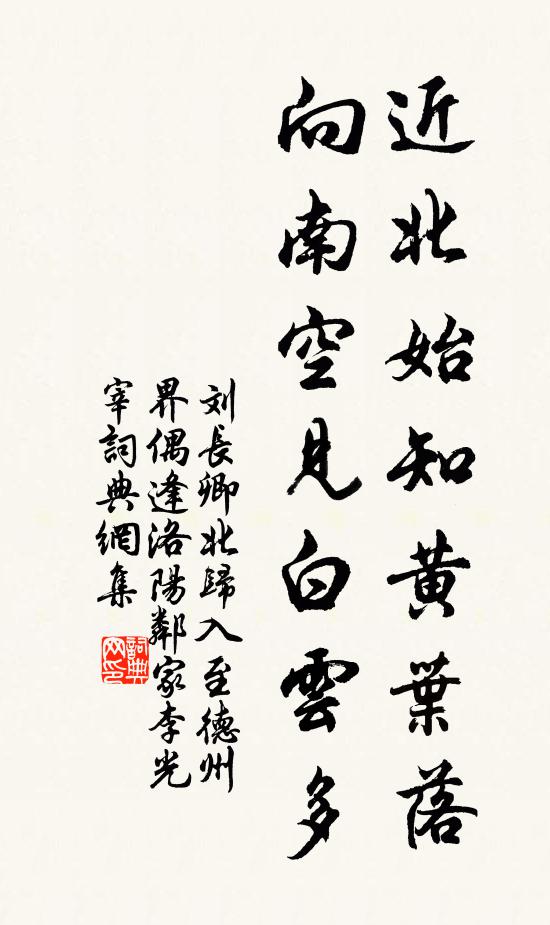 近北始知黄葉落
向南空見白雲多
刘長卿北歸入至德州
界偶逢洛陽鄰家李光
宰詞典網集
詞典
网印